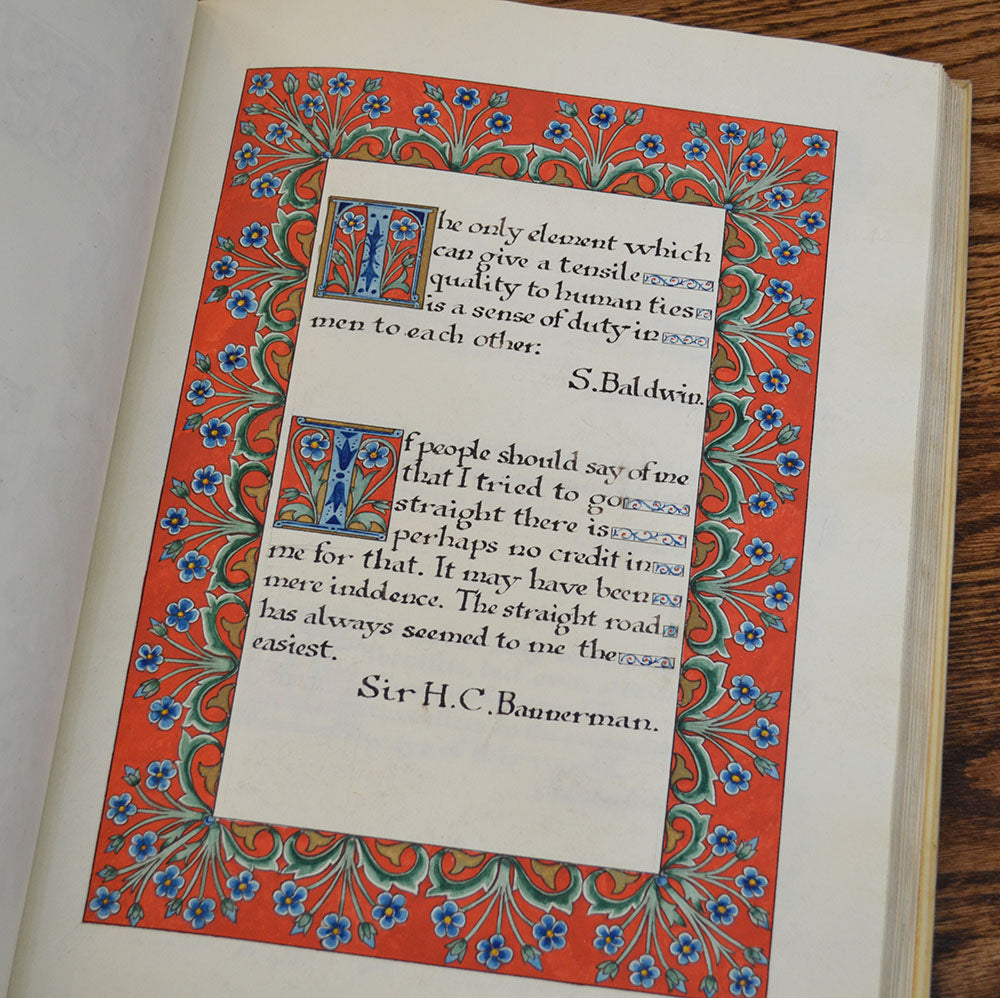 The only element which
can give a tensile
quality to human ties
is a sense of duty in
men to each other:
S. Baldwin.
If people should say of me
that I tried to go
straight there is
perhaps no credit in
me for that. It may have been
mere inddence. The straight road
has always seemed to me the
easiest.
Sir H. C. Bannerman.